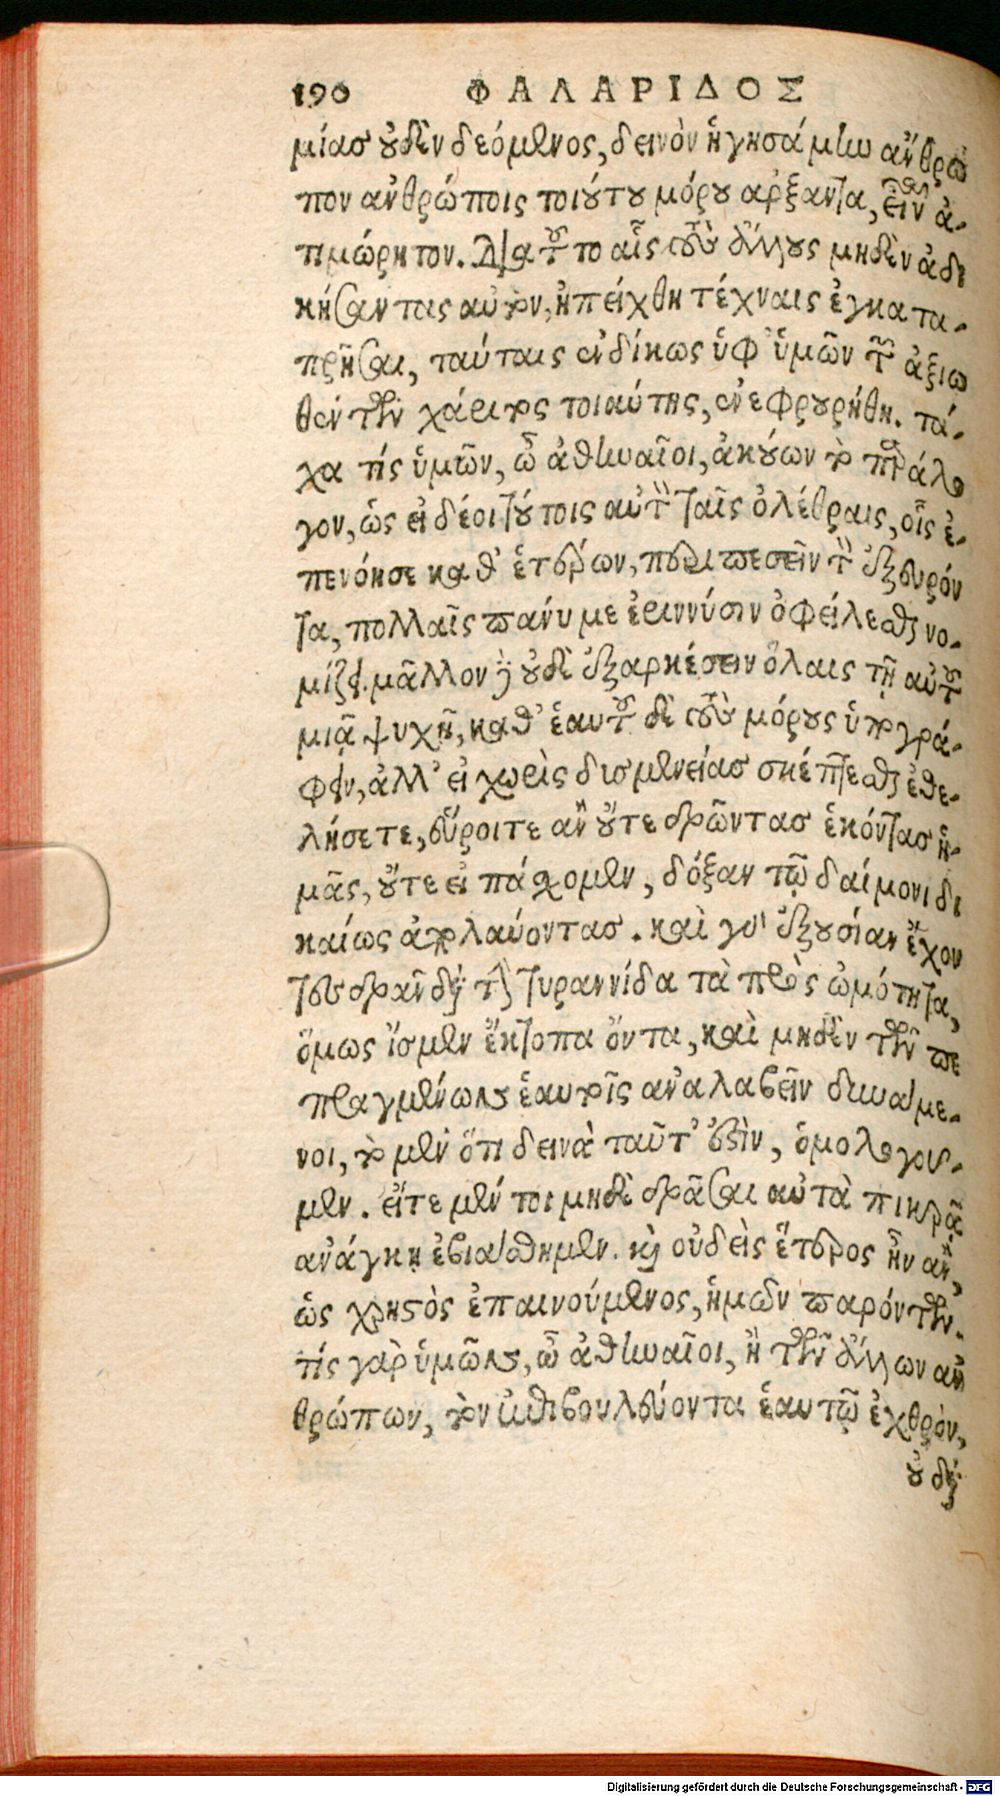 190 ΦΑΛΑΡΙΔΟΣ
μίασ οὐδὲν δεόμενος, δεινὸν ἡγησάμην ἄνθρω
πον ἀνθρώποις τοιούτου μόρου ἄρξαντα, ἐᾶν ἀ-
τιμώρητον. Διατοῦτο αἷς τοὺς ἄλλους μηδὲν ἀδι
κήσαντας αὐτὸν, ἠπείχθη τέχναις ἐγκατα-
πρῆσαι, ταύταις ἐνδίκως ὑφ' ὑμῶν τῶν ἀξιω
θέντων χάριτος τοιαύτης, ἐνεφρουρήθη. τά-
χα τίς ὑμῶν, ὦ ἀθηναῖοι, ἀκούων τὸ παράλο
γον, ὡς εἰ δέοι τούτοις αὐτὸν ταῖς ὀλέθραις, οἷς ἐ-
πενόησε καθ' ἑτέρων, περιπεσεῖν τὸν ἐξευρόν
τα, πολλαῖς πάνυ με ἐριννύσιν ὀφείλεσθαι νο-
μίζει. μᾶλλον δὲ οὐδὲ ἐξαρκέσειν ὅλαις τῇ αὐτοῦ
μιᾷ ψυχῇ, καθ' ἑαυτοῦ δὲ τοὺς μόρους ὑπογρά-
φειν, ἀλλ' εἰ χωρὶς δισμενείασ σκέπτεσθαι ἐθε-
λήσετε, εὕροιτε ἂν οὔτε δρῶντασ ἑκόντασ ἡ-
μᾶς, οὔτε εἰ πάσχομεν, δόξαν τῷ δαίμονι δι
καίως ἀπολαύοντασ. καὶ γὰρ ἐξουσίαν ἔχον
τες δρᾶν διὰ τὴν τυραννίδα τὰ πρὸς ὠμότητα,
ὅμως ἴσμεν ἔκτοπα ὄντα, καὶ μηδὲν τῶν πε
πραγμένων ἑαυτοῖς ἀναλαβεῖν δυνάμε-
νοι, τὸ μὲν ὅτι δεινὰ ταῦτ' ἐστὶν, ὁμολογοῦ-
μεν. εἴτε μέν τοι μηδὲ δρᾶσαι αὐτὰ πικρᾷ
ἀνάγκῃ ἐβιάσθημεν. καὶ οὐδεὶς ἕτερος ἦν ἂν,
ὡς χρηστὸς ἐπαινούμενος, ἡμῶν παρόντων.
τίς γὰρ ὑμῶν, ὦ ἀθηναῖοι, ἢ τῶν ἄλλων ἀν
θρώπων, τὸν ἐπιβουλεύοντα ἑαυτῷ ἐχθρὸν,
οὐ δι'
Digitalisierung gefördert durch die Deutsche Forschungsgemeinschaft - DFG